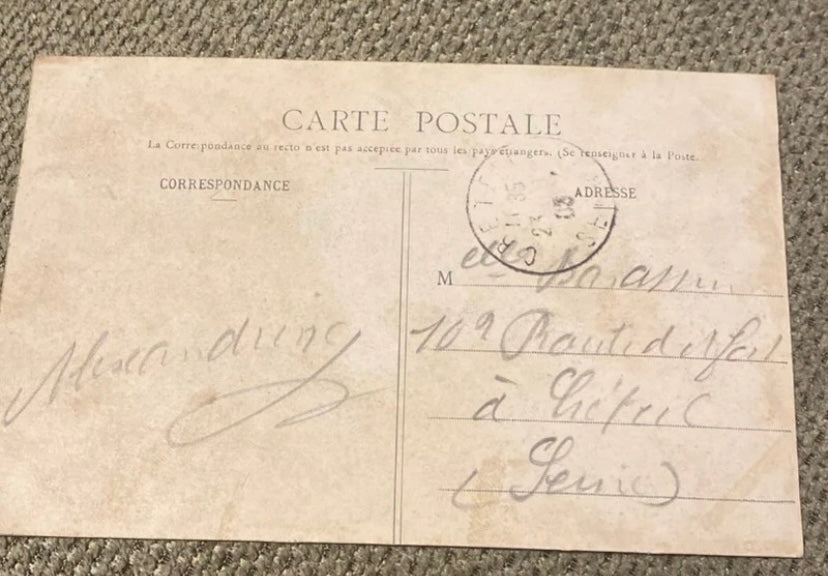 CARTE POSTALE
La Correspondance au recto n'est pas acceptée par tous les pays étrangers. (Se renseigner à la Poste.
CORRESPONDANCE
ADRESSE
CRETE
11 35
23
08
SE
M elle
109 Route de
à Créteil
(Seine)
Alexandrine